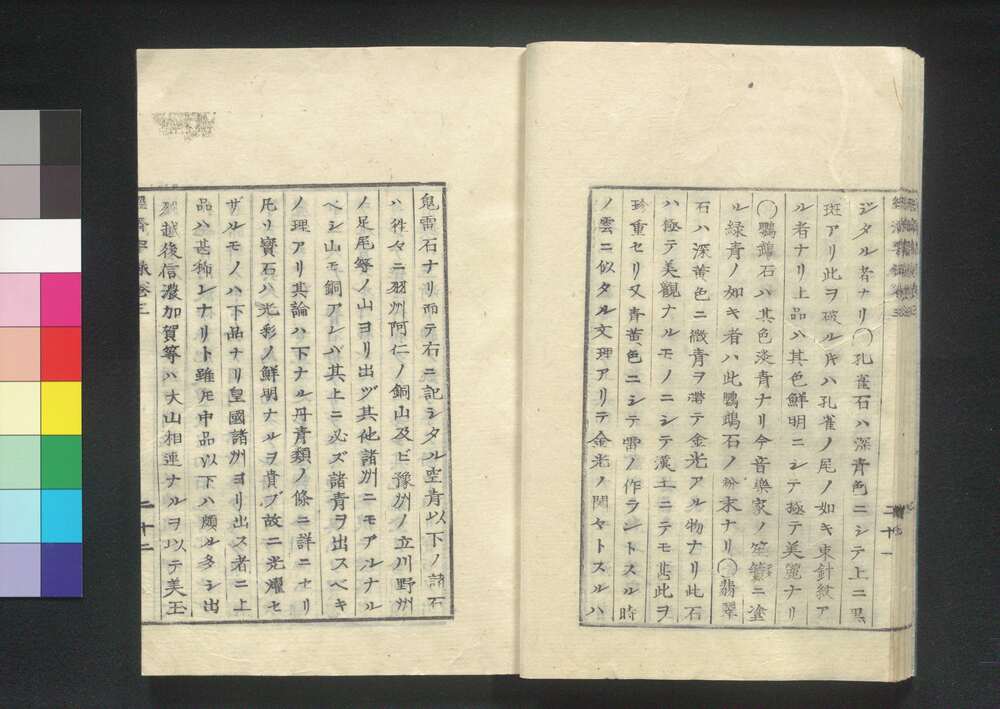 ジタル者ナリ〇孔雀石ハ深青色ニシテ上ニ黒
斑アリ此ヲ破ル片ハ孔雀ノ尾ノ如キ束針紋ア
ル者ナリ上品ハ其色鮮明ニシテ極テ美麗ナリ
〇鸚鵡石ハ其色淡青ナリ今音樂家ノ笙簧ニ塗
ル緑青ノ如キ者ハ此鸚鵡石ノ粉末ナリ〇翡翠
石ハ深黄色ニ微青ヲ帶テ金光アル物ナリ此石
ハ極テ美觀ナルモノニシテ漢土ニテモ甚此ヲ
珍重セリ又青黄色ニシテ雷ノ作ラントスル時
ノ雲ニ似タル文理アリテ金光ノ閃々トスルハ
二十一
鬼雷石ナリ而テ右ニ記シタル空青以下ノ諸石
ハ徃々ニ羽州阿仁ノ銅山及ビ豫州ノ立川野州
ノ足尾等ノ山ヨリ出ヅ其他諸州ニモアルナル
ベシ山モ銅アレバ其上ニ必ズ諸青ヲ出スベキ
ノ理アリ其論ハ下ナル丹青類ノ條ニ詳ニセリ
凡リ寳石ハ光彩ノ鮮明ナルヲ貴ブ故ニ光濯セ
ザルモノハ下品ナリ皇國諸州ヨリ出ス者ニ上
品ハ甚稀レナリト雖𪜈中品以下ハ頗ル多シ出
羽越後信濃加賀等ハ大山相連ナルヲ以テ美玉
二十二